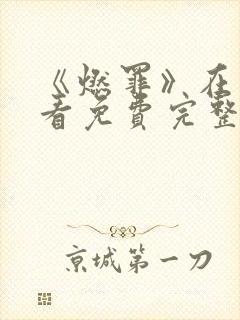 《燃罪》在
看免费完整
京城第一刀